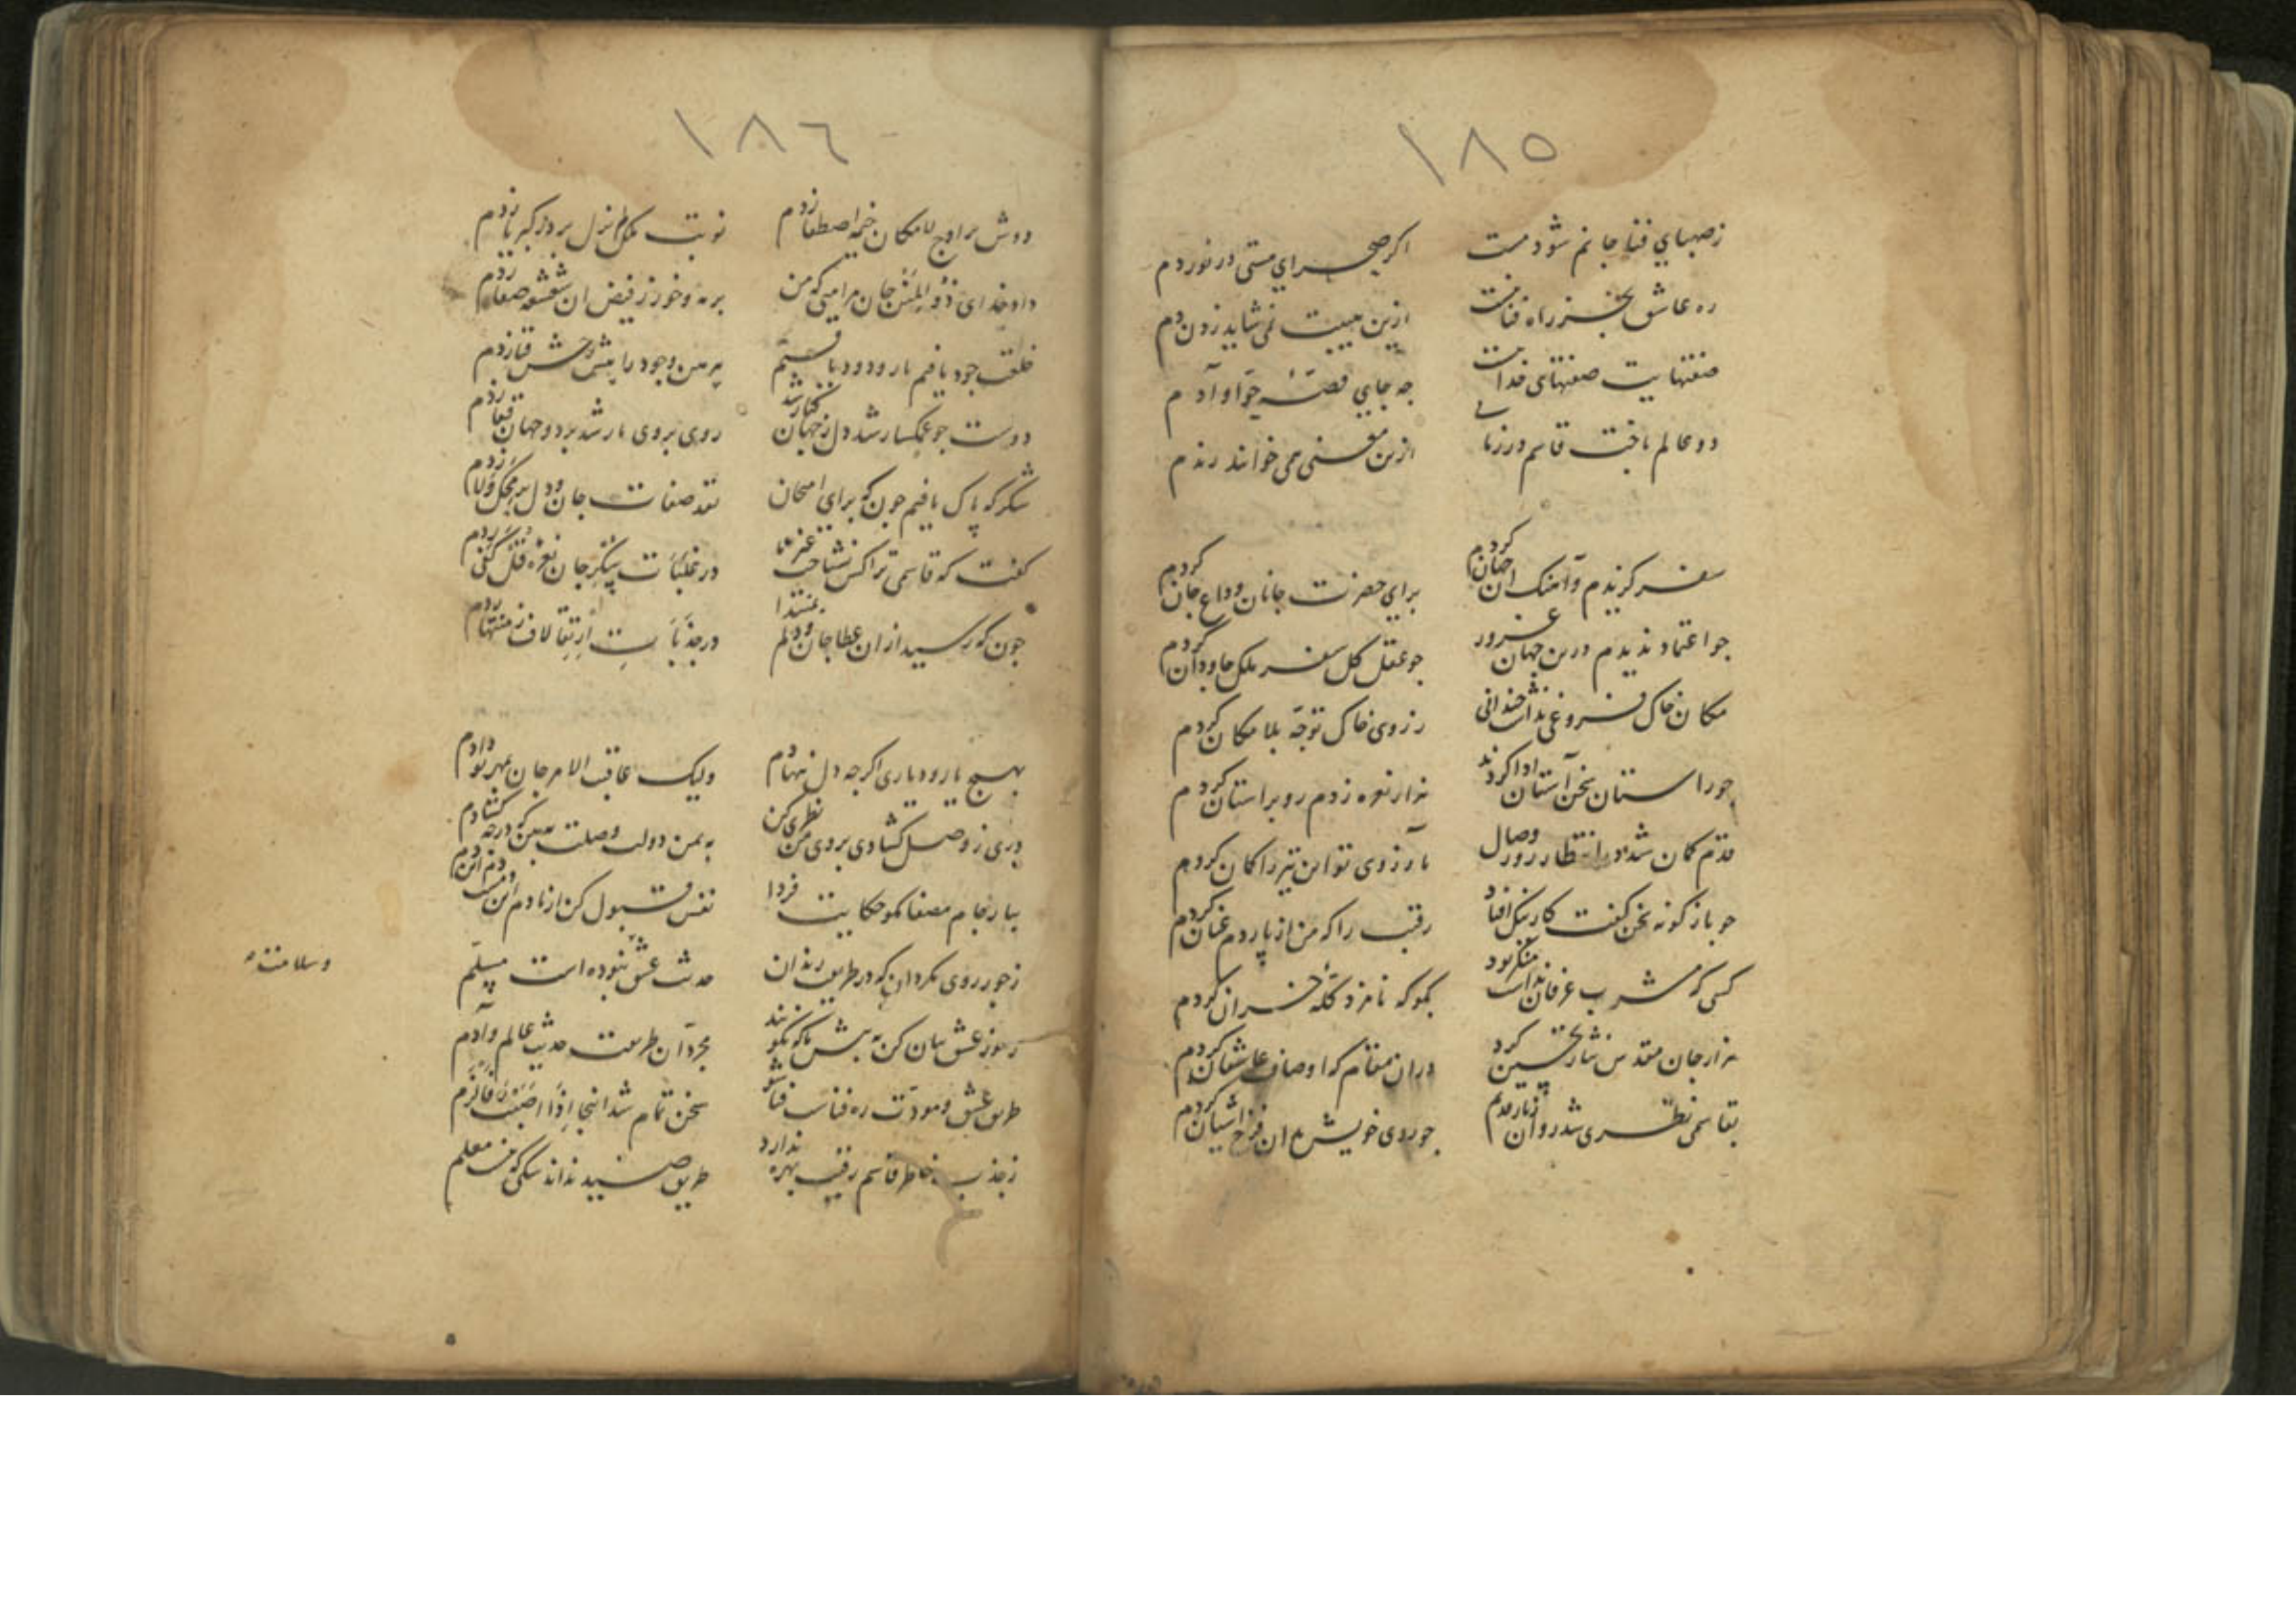 ١٨٥
ز صهبای فنا جانم شود مست اکر صحرای مستی در نوردم
ره عاشق بجز راه فنا نیست ازین هیبت نمی شاید زدن دم
صفتهایت صفتهای خداست جه جای قصهٔ حوّا و آدم
دو عالم باخت قاسم در زمانی ازین معنی همی خوانند رندم
سفر کزیدم و آهنک ان جهان کردم برای حضرت جانان وداع جان کردم
جو اعتماد ندیدم درین جهان غرور جو عقل کل سفر ملک جاودان کردم
مکان خاک فروغی نداشت جندانی ز روی خاک توجّه بلا مکان کردم
جو راستان سخن آستان ادا کردند هزار نعره زدم رو بر استان کردم
قدم کمان شد در انتظار روز وصال بآرزوی تو این تیر را کمان کردم
جو باز کونه سخن کفت کار نیک افتاد رقیب را که من از پاردم عنان کردم
کسی که مشرب عرفان نداشت منکر بود بکو که نامزد کلّه خران کردم
هزار جان مقدس نثار تحسین کرد دران مقام که اوصاف عاشقان کردم
بقاسمی نظری شد روان ز یار قدیم جو روی خویش بدان فرّخ آشیان کردم
١٨٦
دوش بر اوج لامکان خیمه اصطفا زدم نوبت ملک لم یزل بر در کبریا زدم
داد خدای ذو المنن جان مرا میی که من بر مه و خور ز فیض ان شعشعه صفا زدم
خلعت جود یافتم تار ودود بافتم پیرهن وجود را پیش رخش قبا زدم
دوست جو غمکسار شد دل ز جهان کنار شد روی بروی یار شد بر دو جهان قفا زدم
شکر که پاک یافتم جون که برای امتحان نقد صفات جان و دل بر محک ولا زدم
کفت که قاسمی ترا کس نشناخت غیر ما در غلبات شکر جان نعره قل کفی زدم
جون که رسید از ان عطا جان و دلم بمنتدا در جذبات ارتقا لاف ز منتها زدم
بهیچ یار و دیاری اکرجه دل ننهادم ولیک عاقب الامر جان بمهر تو دادم
دری ز وصل کشادی بروی من نظری کن به یمن دولت وصلت ببین که درجه کشادم
بیا رنجام مصفا مکو حکایت فردا نفس قبول کن از ما دم این دمست دم این دم
ز جور روی مکردان که در طریق رندان حدیث عشق نبوده است مسلّم
وسلامت
رموز عشق بیان کن به پیش ما که نکویند مجرّدان طریقت حدیث عالم و آدم
طریق عشق و مودّت ره فناست فنا شو سخن تمام شد اینجا اذا اصبت فالزم
ز جذب خاطر قاسم رقیب بهره ندارد طریق صید نداند سکی که نیست معلم